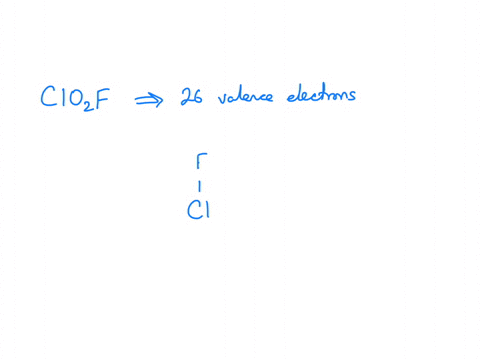 ClO₂F ⇒ 26 valence electrons
F
Cl